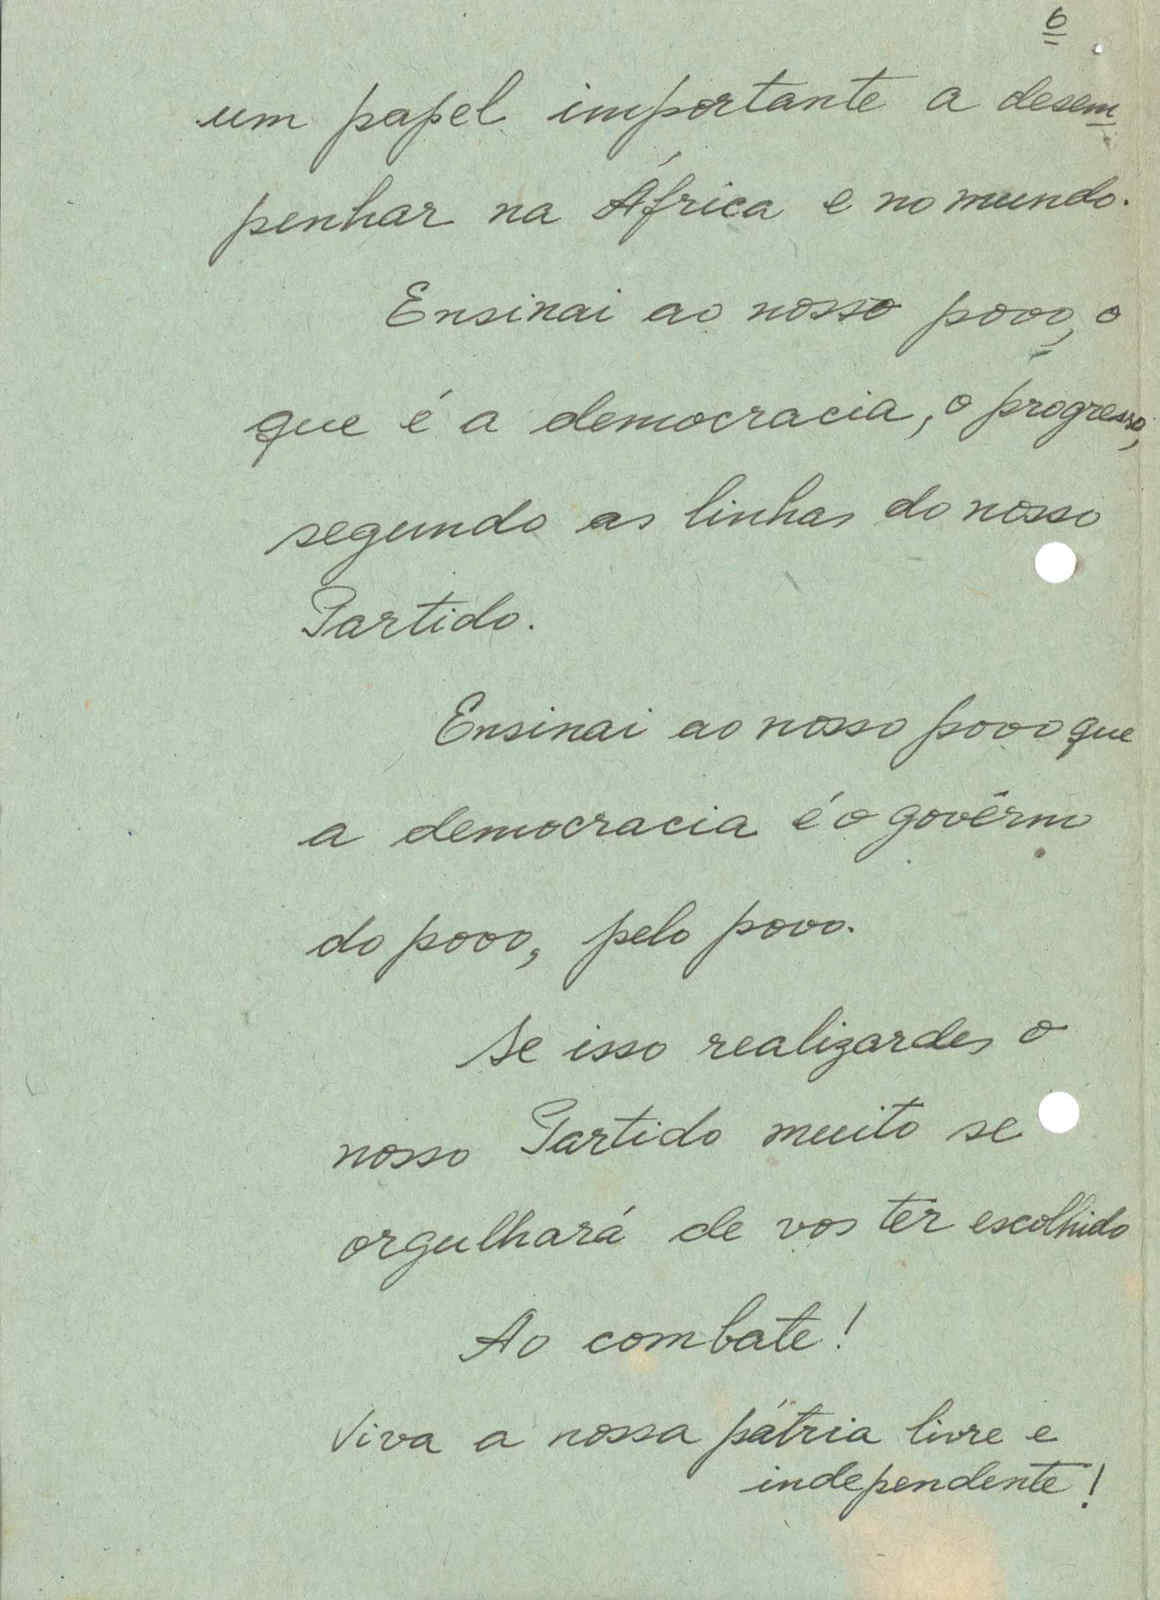 6
um papel importante a desem
penhar na África e no mundo.
Ensinai ao nosso povo, o
que é a democracia, o progresso,
segundo as linhas do nosso
Partido.
Ensinai ao nosso povo que
a democracia é o govêrno
do povo, pelo povo.
Se isso realizardes o
nosso Partido muito se
orgulhará de vos ter escolhido
Ao combate!
Viva a nossa pátria livre e
independente!